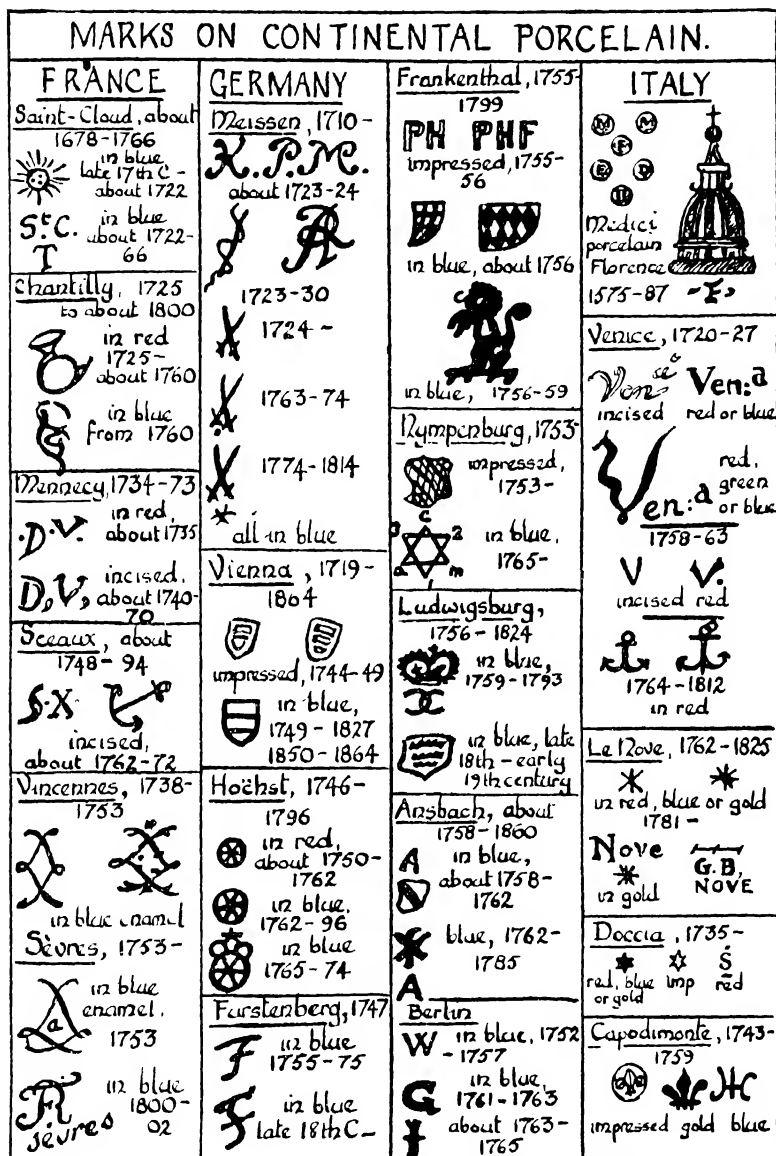 MARKS ON CONTINENTAL PORCELAIN.
FRANCE
Saint-Cloud, about
1678-1766
in blue
late 17th C -
about 1722
St C.
T
in blue
about 1722-
66
Chantilly, 1725
to about 1800
in red
1725-
about 1760
in blue
from 1760
Mennecy, 1734-73
.D.V.
in red,
about 1735
D,V,
incised,
about 1740-
70
Sceaux, about
1748-94
S·X
incised,
about 1762-72
Vincennes, 1738-
1753
in blue enamel
Sèvres, 1753-
a
in blue
enamel,
1753
R
sèvres
in blue
1800-
02
GERMANY
Meissen, 1710-
K.P.M.
about 1723-24
AR
1723-30
1724-
1763-74
1774-1814
all in blue
Vienna, 1719-
1864
impressed, 1744-49
in blue,
1749-1827
1850-1864
Hoëchst, 1746-
1796
in red,
about 1750-
1762
in blue,
1762-96
in blue
1765-74
Furstenberg, 1747
F
in blue
1755-75
F
in blue
late 18th C-
Frankenthal, 1755-
1799
PH PHF
impressed, 1755-
56
in blue, about 1756
in blue, 1756-59
Nympenburg, 1753-
impressed,
1753-
in blue,
1765-
Ludwigsburg,
1756-1824
in blue,
1759-1793
in blue, late
18th-early
19th century
Ansbach, about
1758-1860
A
in blue,
about 1758-
1762
blue, 1762-
1785
A
Berlin
W
in blue, 1752
-1757
G
in blue,
1761-1763
about 1763-
1765
ITALY
M M
F
E D
II
Medici
porcelain
Florence
1575-87
-F-
Venice, 1720-27
Ven: a
incised red or blue
Ven: a
red,
green
or blue
1758-63
V V.
incised red
1764-1812
in red
Le Nove, 1762-1825
in red, blue or gold
1781-
Nove
in gold
G.B,
NOVE
Doccia, 1735-
S
red, blue
or gold
imp
red
Capodimonte, 1743-
1759
impressed gold blue